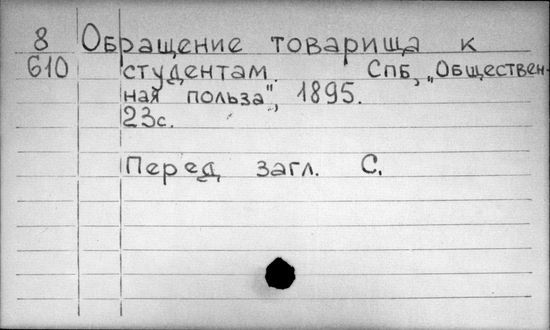 8 Обращение товарища к
610 студентам. СПБ, „Обществен-
ная польза", 1895.
23с.
Перед загл. С.